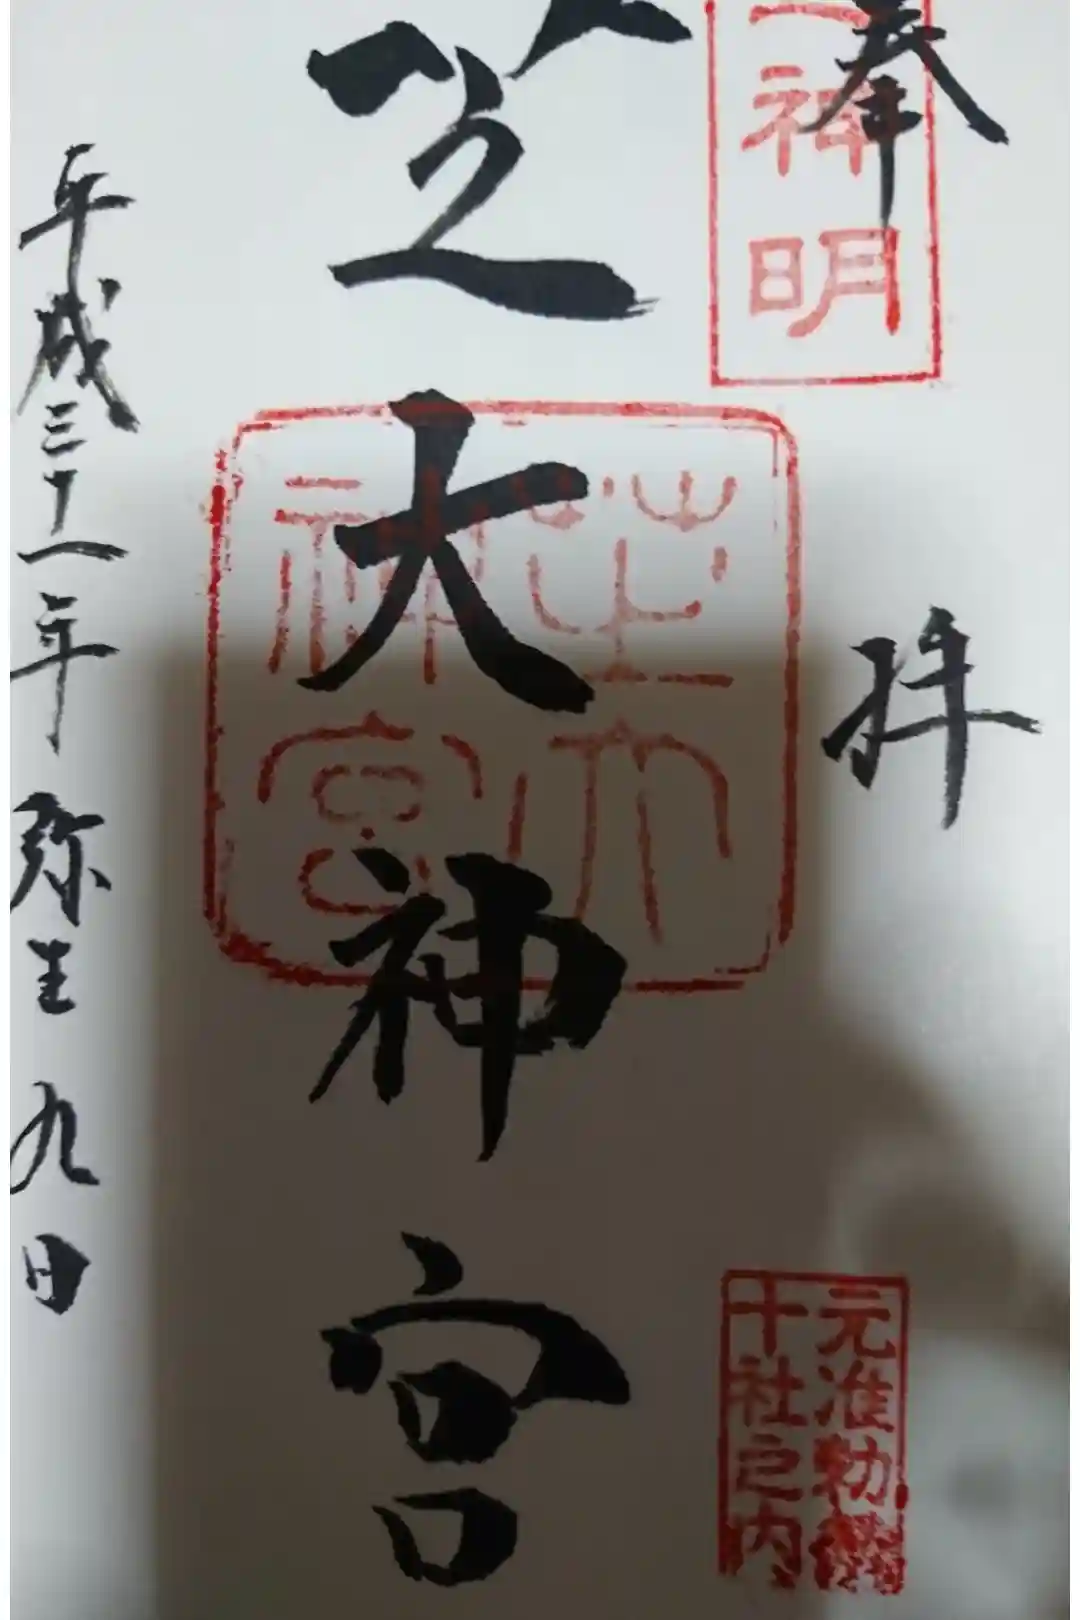 奉拝
神明
芝大神宮
芝大神宮
元准勅
十社之内
平成三十一年弥生九日